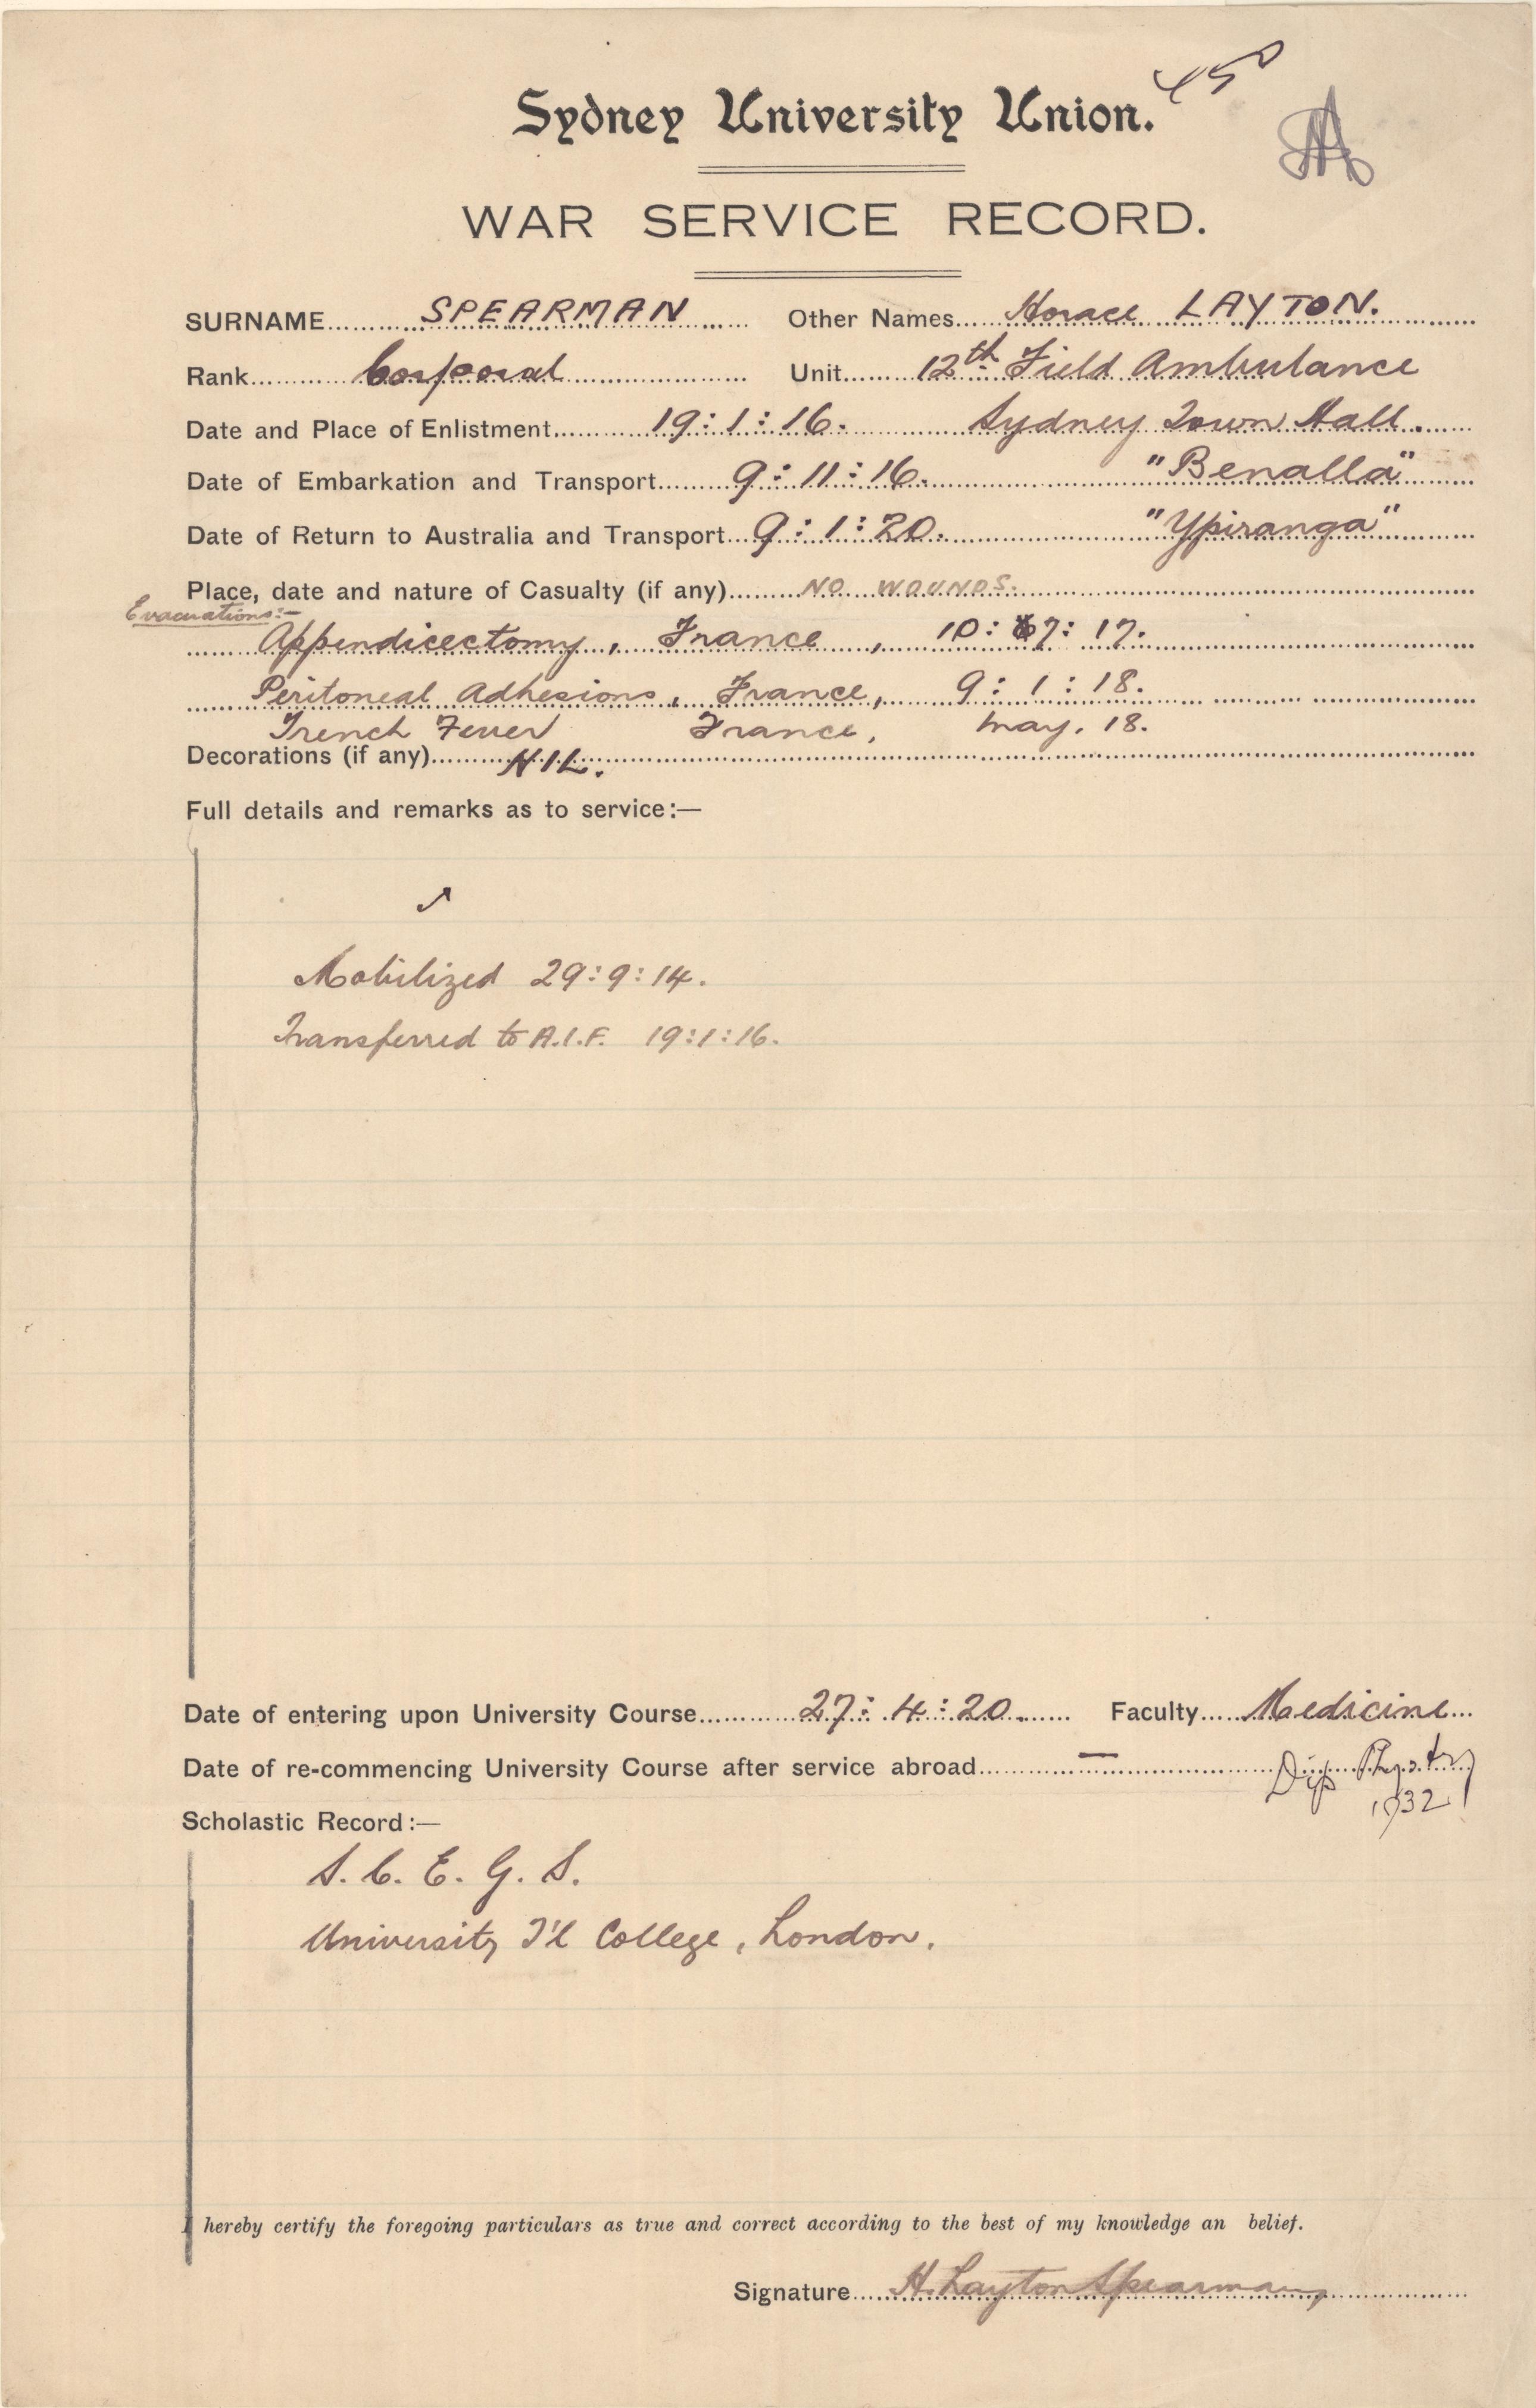 Sydney University Union.
WAR SERVICE RECORD.
SURNAME SPEARMAN Other Names Horace LAYTON.
Rank Corporal Unit 12th Field Ambulance
Date and Place of Enlistment 19:1:16. Sydney Town Hall.
Date of Embarkation and Transport 9:11:16. "Benalla"
Date of Return to Australia and Transport 9:1:20. "Ypiranga"
Place, date and nature of Casualty (if any) NO WOUNDS.
Evacuations:-
Appendicectomy, France, 10:7:17.
Peritoneal Adhesions, France, 9:1:18.
Trench Fever France, May. 18.
Decorations (if any) NIL.
Full details and remarks as to service:—
Mobilized 29:9:14.
Transferred to A.I.F. 19:1:16.
Date of entering upon University Course 27:4:20. Faculty Medicine
Date of re-commencing University Course after service abroad — Dip
1932
Scholastic Record:—
S. C. E. G. S.
University College, London.
I hereby certify the foregoing particulars as true and correct according to the best of my knowledge an belief.
Signature H. Layton Spearman